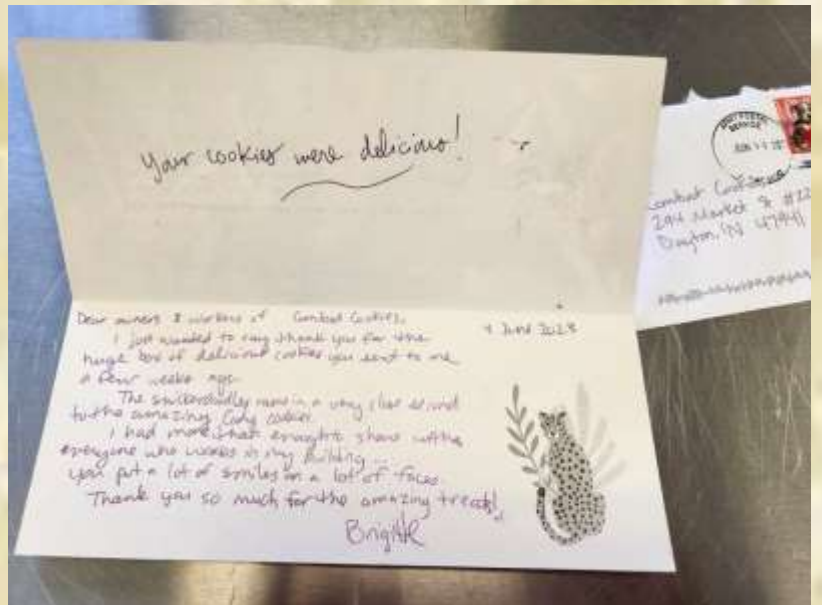 Your cookies were delicious!
Dear owners & workers of Combat Cookies,
4 June 2023
I just wanted to say thank you for the
huge box of delicious cookies you sent to me
a few weeks ago.
The snickerdoodles came in a very close second
to the amazing Cody cookies.
I had more than enough to share with
everyone who works in my building...
you put a lot of smiles on a lot of faces
Thank you so much for the amazing treats!
SERVICE
JUN
Combat Cookies
294 Market St #22
Dayton, IN 47941